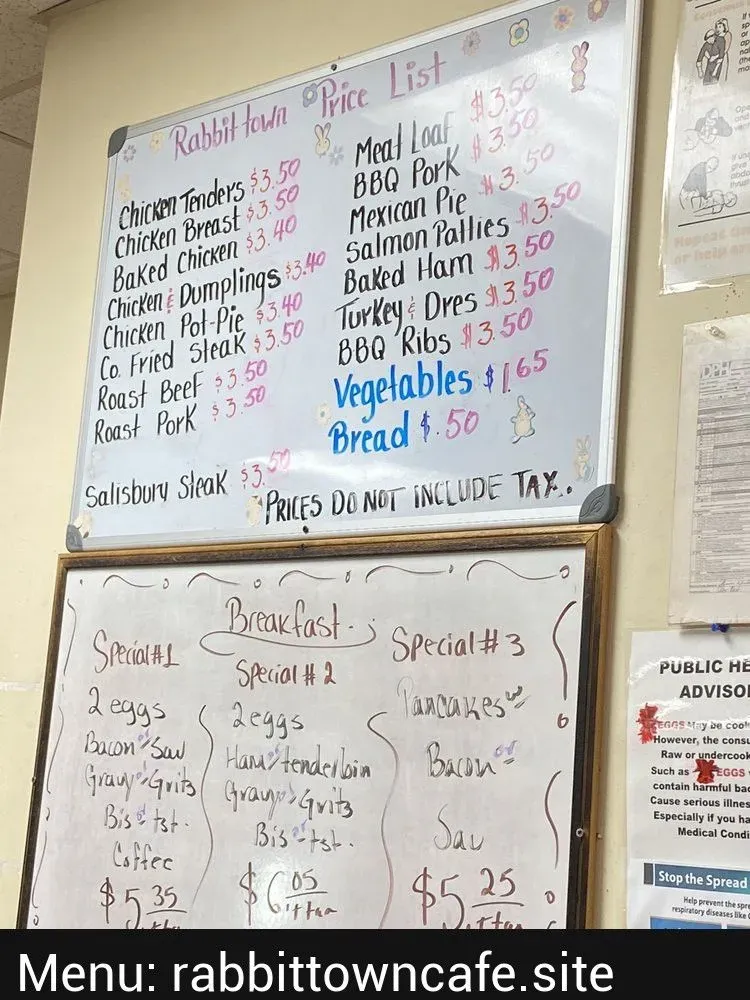 Rabbittown Price List
Chicken Tenders $3.50
Chicken Breast $3.50
Baked Chicken $3.40
Chicken & Dumplings $3.40
Chicken Pot-Pie $3.40
Co. Fried Steak $3.50
Roast Beef $3.50
Roast Pork $3.50
Salisbury Steak $3.50
Meat Loaf $3.50
BBQ Pork $3.50
Mexican Pie $3.50
Salmon Patties $3.50
Baked Ham $3.50
Turkey & Dres $3.50
BBQ Ribs $3.50
Vegetables $1.65
Bread $.50
PRICES DO NOT INCLUDE TAX.
Breakfast
Special #1
2 eggs
Bacon or Sau
Gravy or Grits
Bis or tst.
Coffee
$5.35
Special #2
2 eggs
Ham or tenderloin
Gravy or Grits
Bis or tst.
$6.05
Special #3
Pancakes w/
Bacon or
Sau
$5.25
PUBLIC HE
ADVISO
EGGS May be cook
However, the consu
Raw or undercook
Such as EGGS
contain harmful bac
Cause serious illnes
Especially if you ha
Medical Condi
Stop the Spread
Help prevent the spre
respiratory diseases like C
DPH
Menu: rabbittowncafe.site